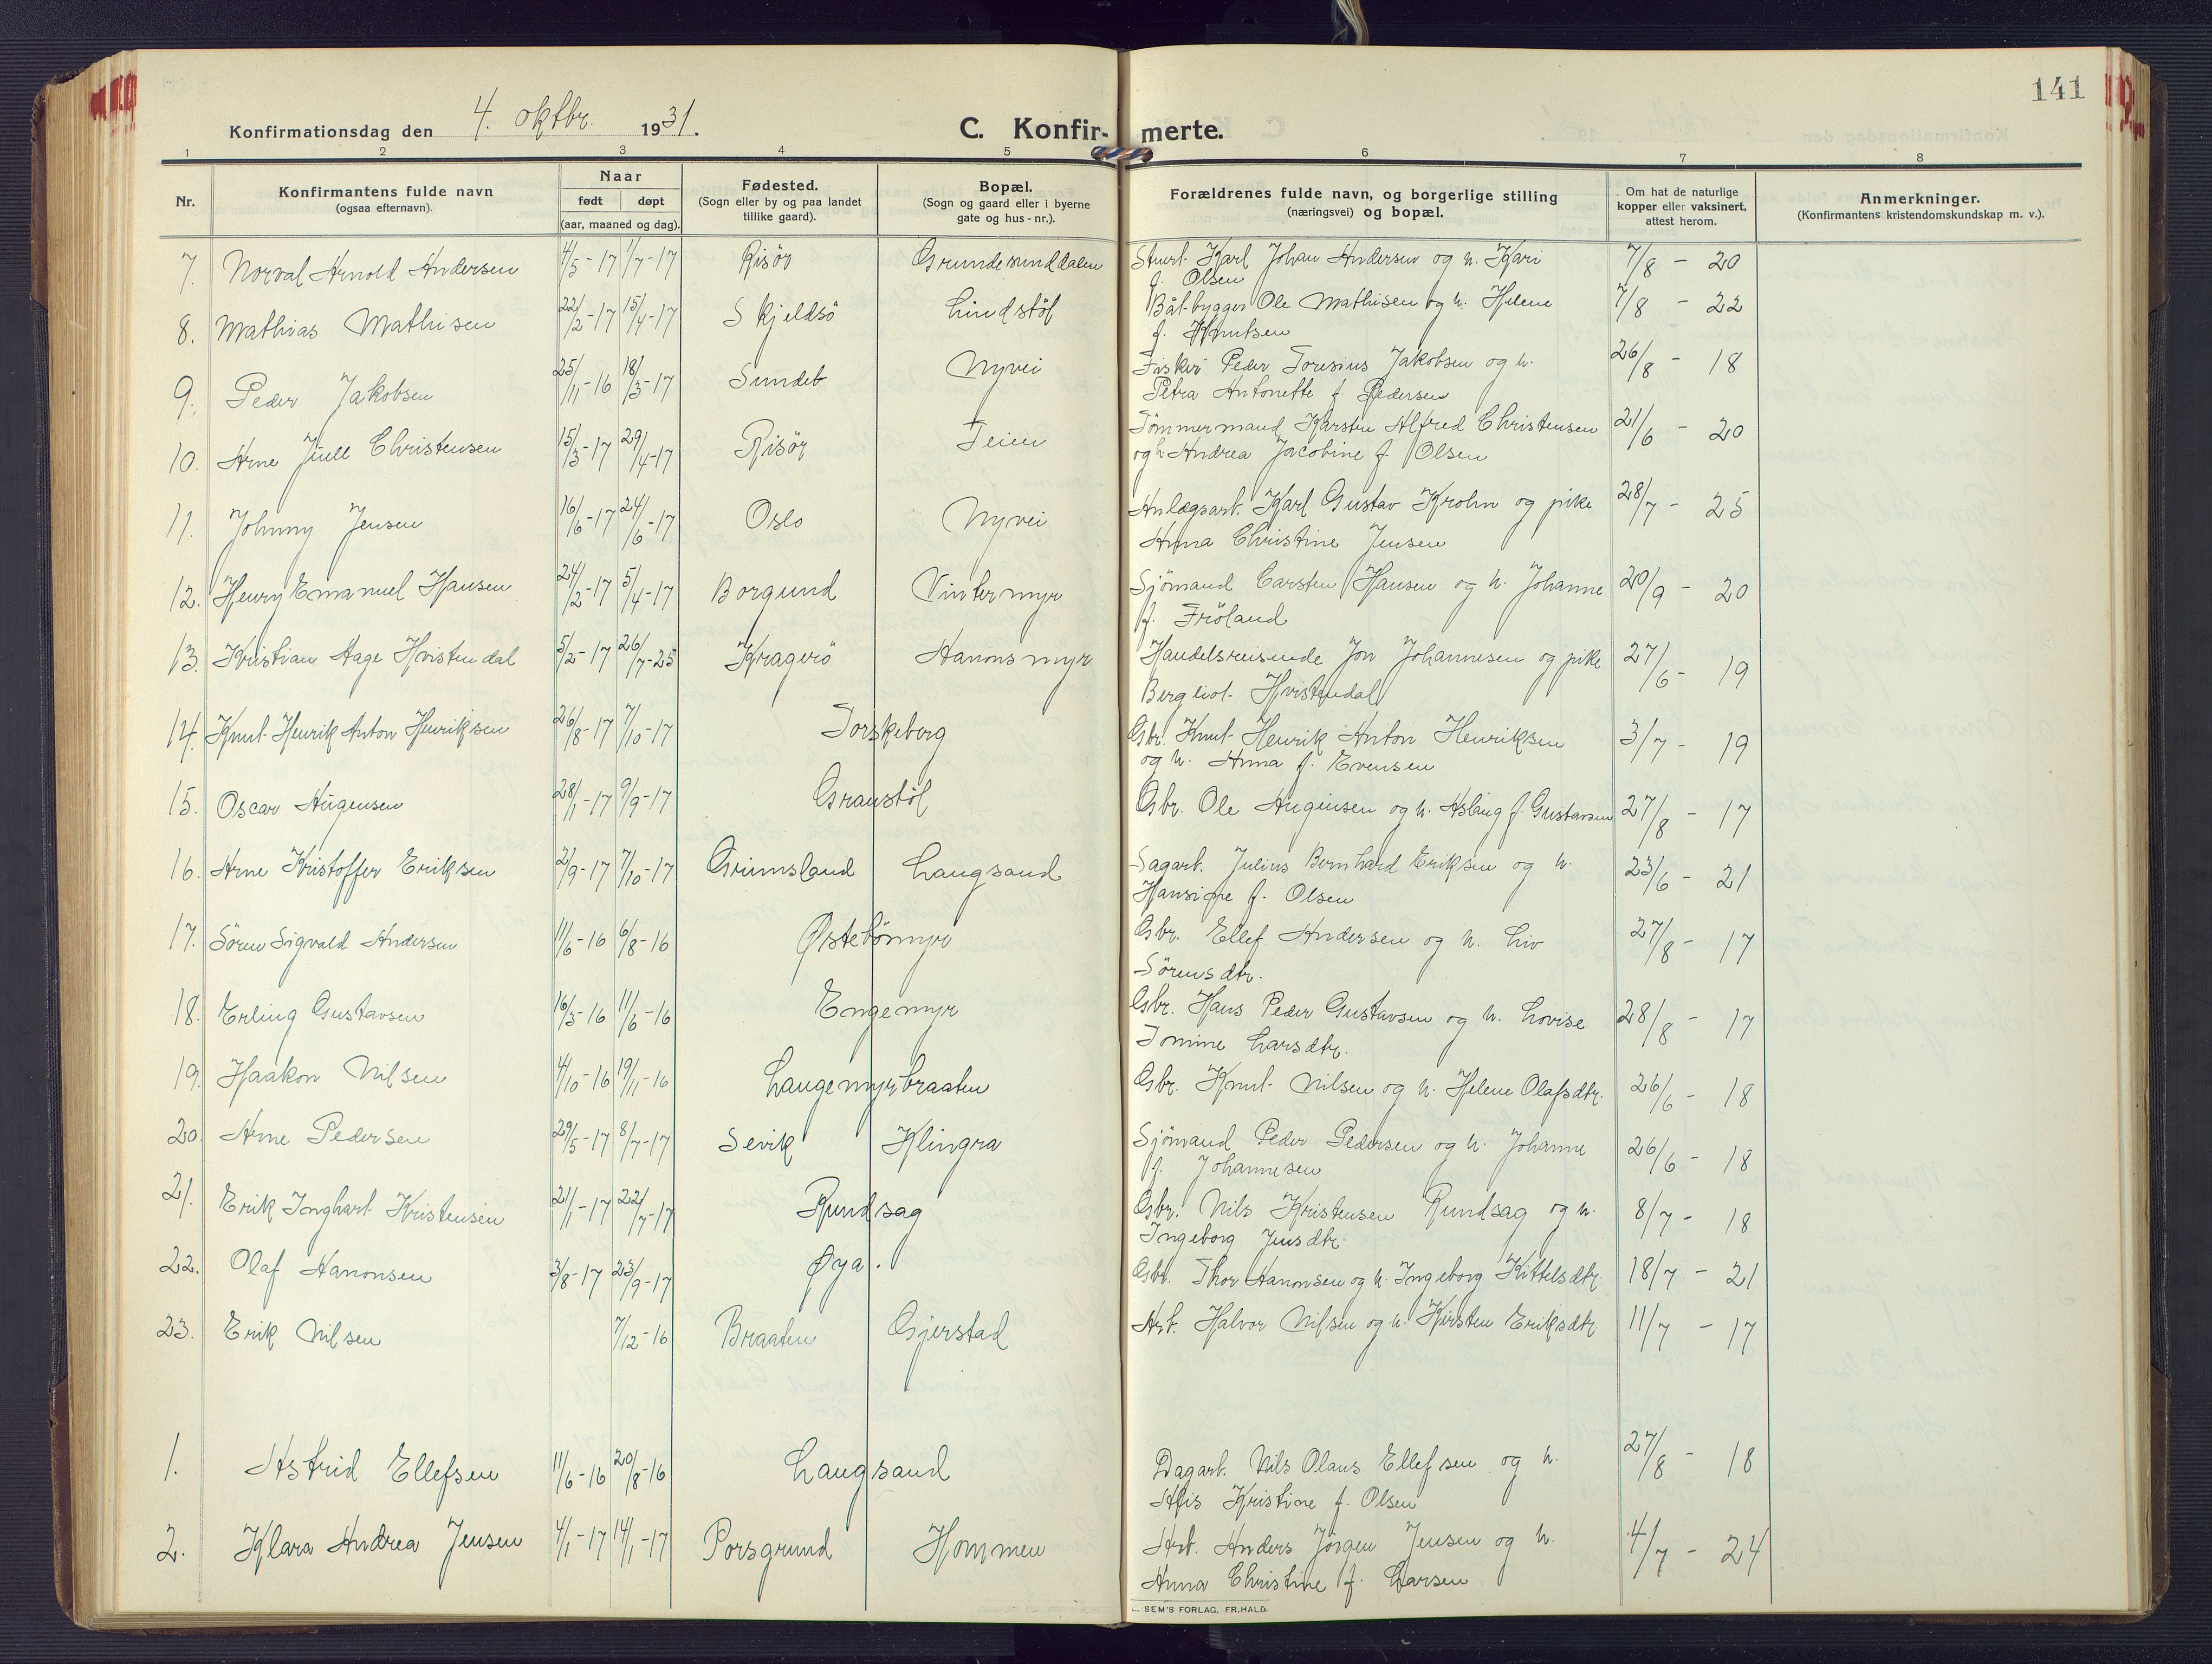 141
Konfirmationsdag den 4. oktbr. 1931.
C. Konfir- merte.
1 2 3 4 5 6 7 8
Nr.
Konfirmantens fulde navn
(ogsaa efternavn).
Naar
født døpt
(aar, maaned og dag).
Fødested.
(Sogn eller by og paa landet
tillike gaard).
Bopæl.
(Sogn og gaard eller i byerne
gate og hus-nr.).
Forældrenes fulde navn, og borgerlige stilling
(næringsvei) og bopæl.
Om hat de naturlige
kopper eller vaksinert,
attest herom.
Anmerkninger.
(Konfirmantens kristendomskundskap m. v.).
7. Norval Arnold Andersen 4/5-17 1/7-17 Risör Grundesunddalen Stuert. Karl Johan Andersen og h. Kari 7/8 - 20
f. Olsen
8. Mathias Mathisen 22/2-17 15/4-17 Skjeldsö Lindstöl Båtbygger Ole Mathisen og h. Helene 7/8 - 22
f. Knutsen
9. Peder Jakobsen 25/11-16 18/3-17 Sundet Nyvei Fisker Peder Toresius Jakobsen og h. 26/8 - 18
Petra Antonette f. Pedersen
10. Arne Juell Christensen 15/3-17 29/4-17 Risör Teien Tömmermand Karsten Alfred Christensen 21/6 - 20
og h. Andrea Jacobine f. Olsen
11. Johnny Jensen 16/6-17 24/6-17 Oslo Nyvei Anlægsarb. Karl Gustav Krohn og pike 28/7 - 25
Anna Christine Jensen
12. Henry Emanuel Hansen 24/2-17 5/4-17 Borgund Vintermyr Sjömand Carsten Hansen og h. Johanne 20/9 - 20
f. Fröland
13. Kristian Aage Hvistendal 5/2-17 26/7-25 Kragerö Hanonsmyr Handelsreisende Jon Johannesen og pike 27/6 - 19
Bergliot Hvistendal
14. Knut Henrik Anton Henriksen 26/8-17 7/10-17 Torskeberg Gbr. Knut Henrik Anton Henriksen 3/7 - 19
og h. Anna f. Evensen
15. Oscar Augensen 28/1-17 9/9-17 Granstöl Gbr. Ole Augensen og h. Aslaug f. Gustavsen 27/8 - 17
16. Arne Kristoffer Eriksen 2/9-17 7/10-17 Grimsland Laugsand Sagarb. Julius Bernhard Eriksen og h. 23/6 - 21
Hansine f. Olsen
17. Sören Sigvald Andersen 11/6-16 6/8-16 Østebömyr Gbr. Ellef Andersen og h. Liv 27/8 - 17
Sörensdtr.
18. Erling Gustavsen 16/3-16 11/6-16 Engemyr Gbr. Hans Peder Gustavsen og h. Lovise 28/8 - 17
Tomine Larsdtr.
19. Haakon Nilsen 4/10-16 19/11-16 Laugemyrbraaten Gbr. Knut Nilsen og h. Helene Olafsdtr. 26/6 - 18
20. Arne Pedersen 29/5-17 8/7-17 Sevik Klingra Sjömand Peder Pedersen og h. Johanne 26/6 - 18
f. Johannesen
21. Erik Inghart Kristensen 21/1-17 22/7-17 Rundsag Gbr. Nils Kristensen Rundsag og h. 8/7 - 18
Ingeborg Jensdtr.
22. Olaf Hanonsen 3/8-17 23/9-17 Øya. Gbr. Thor Hanonsen og h. Ingeborg Kittelsdtr. 18/7 - 21
23. Erik Nilsen 7/12-16 Braaten Gjerstad Arb. Halvor Nilsen og h. Kirsten Eriksdtr. 11/7 - 17
1. Astrid Ellefsen 11/6-16 20/8-16 Laugsand Dagarb. Nils Olaus Ellefsen og h. 27/8 - 18
Alis Kristine f. Olsen
2. Klara Andrea Jensen 4/1-17 14/1-17 Porsgrund Hommen Arb. Anders Jörgen Jensen og h. 4/7 - 24
Anna Christine f. Larsen
SEM'S FORLAG, FR.HALD.